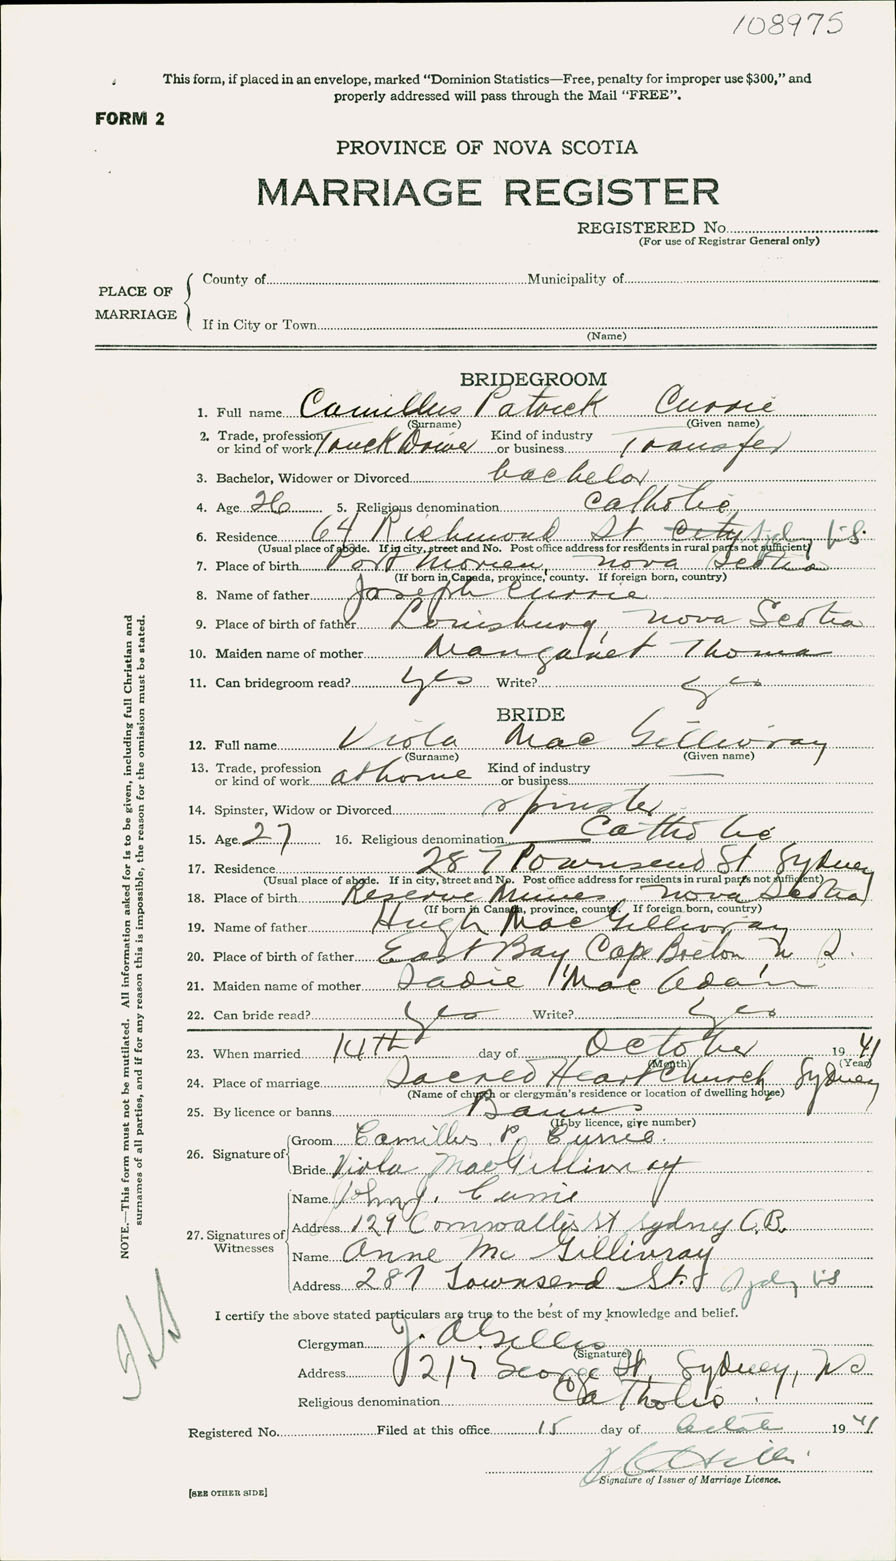 108975
This form, if placed in an envelope, marked “Dominion Statistics—Free, penalty for improper use $300,” and
properly addressed will pass through the Mail “FREE”.
FORM 2
PROVINCE OF NOVA SCOTIA
MARRIAGE REGISTER
REGISTERED No.
(For use of Registrar General only)
PLACE OF MARRIAGE
County of Municipality of
If in City or Town
(Name)
BRIDEGROOM
1. Full name Camillus Patrick Currie
(Surname) (Given name)
2. Trade, profession or kind of work Truck Driver Kind of industry or business Transfer
3. Bachelor, Widower or Divorced bachelor
4. Age 26 5. Religious denomination Catholic
6. Residence 64 Richmond St City Sydney N.S.
(Usual place of abode. If in city, street and No. Post office address for residents in rural parts not sufficient)
7. Place of birth Port Morien, Nova Scotia
(If born in Canada, province, county. If foreign born, country)
8. Name of father Joseph Currie
9. Place of birth of father Louisburg, Nova Scotia
10. Maiden name of mother Margaret Thomas
11. Can bridegroom read? yes Write? yes
BRIDE
12. Full name Viola Mac Gillivray
(Surname) (Given name)
13. Trade, profession or kind of work at home Kind of industry or business —
14. Spinster, Widow or Divorced spinster
15. Age 27 16. Religious denomination Catholic
17. Residence 287 Townsend St Sydney
(Usual place of abode. If in city, street and No. Post office address for residents in rural parts not sufficient)
18. Place of birth Reserve Mines, Nova Scotia
(If born in Canada, province, county. If foreign born, country)
19. Name of father Hugh MacGillivray
20. Place of birth of father East Bay Cape Breton N S.
21. Maiden name of mother Sadie MacAdam
22. Can bride read? yes Write? yes
23. When married 14th day of October 1941
(Month) (Year)
24. Place of marriage Sacred Heart Church, Sydney
(Name of church or clergyman's residence or location of dwelling house)
25. By licence or banns Banns
(If by licence, give number)
26. Signature of
Groom Camillus P. Currie.
Bride Viola MacGillivray
27. Signatures of Witnesses
Name John J. Currie
Address 129 Cornwallis St Sydney C.B.
Name Anne Mc Gillivray
Address 287 Townsend St. Sydney N.S
I certify the above stated particulars are true to the best of my knowledge and belief.
Clergyman J. A. Gillis
(Signature)
Address 217 George St, Sydney, N S
Religious denomination Catholic
Registered No. Filed at this office 15 day of October 1941
Signature of Issuer of Marriage Licence.
[SEE OTHER SIDE]
NOTE.—This form must not be mutilated. All information asked for is to be given, including full Christian and
surnames of all parties, and if for any reason this is impossible, the reason for the omission must be stated.